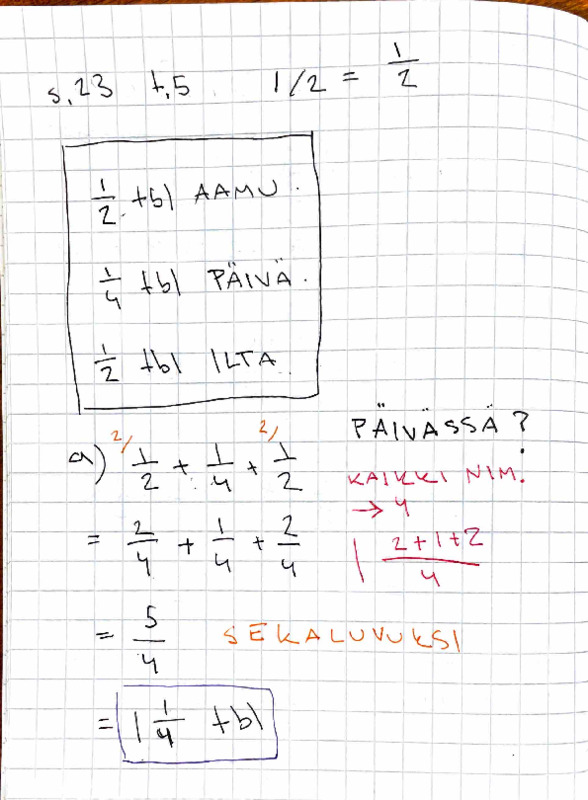 s.23 t.5 1/2 = 1/2
1/2 tbl AAMU.
1/4 tbl PÄIVÄ.
1/2 tbl ILTA.
PÄIVÄSSÄ?
a) 2/ 1/2 + 1/4 + 2/ 1/2
KAIKKI NIM.
→ 4
= 2/4 + 1/4 + 2/4 | (2+1+2)/4
= 5/4 SEKALUVUKSI
= 1 1/4 tbl